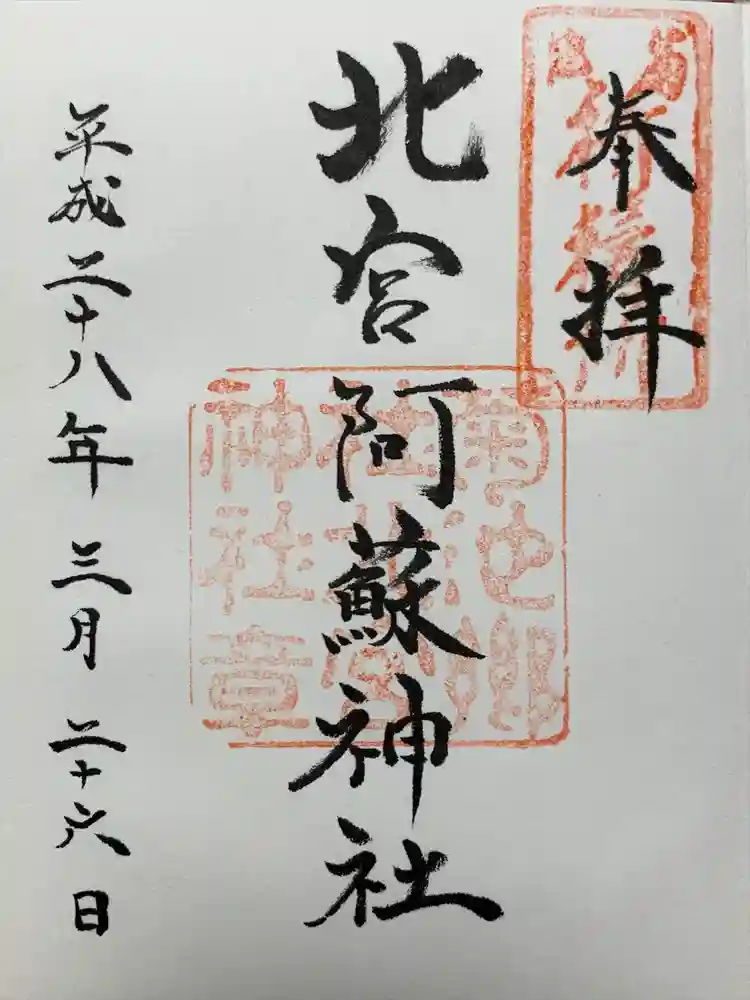 奉拝
北宮阿蘇神社
平成二十八年三月二十六日